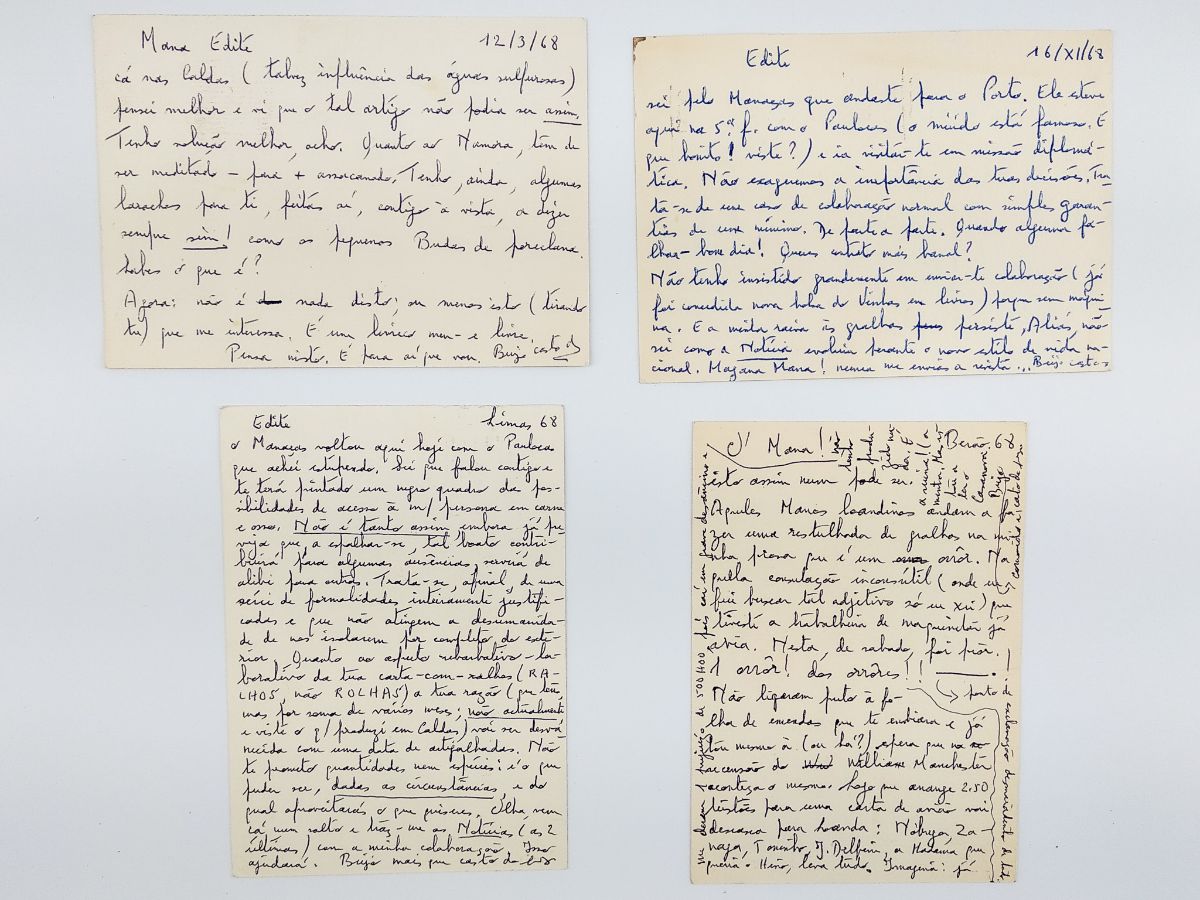 Mana Edite 12/3/68
cá nas Caldas (talvez influência das águas sulfurosas)
pensei melhor e vi que o tal artigo não podia ser assim.
Tenho solução melhor, acho. Quanto ao Namora, tem de
ser meditado – para + assacanado. Tenho, ainda, algumas
larachas para ti, feitas aí, contigo à vista, a dizer
sempre sim! como os pequenos Budas de porcelana.
Sabes o que é?
Agora: não é nada disto; ou menos isto (tirando
tu) que me interessa. É um lírico meu – e livre.
Pensa nisto. É para aí que vou. Beijo casto do
Edite 16/XI/68
sei pelo Manaças que andaste para o Porto. Ele esteve
aqui na 5.ª f. com o Paulocas (o miúdo está famoso. E
que bonito! viste?) e ia visitar-te em missão diplomá-
tica. Não exageremos a importância das tuas decisões. Tra-
ta-se de um caso de colaboração normal com simples garan-
tias de um mínimo. De parte a parte. Quando alguma fa-
lhar – bom dia! Queres contrato mais banal?
Não tenho insistido grandemente em enviar-te colaboração (já
foi concedida nova bolsa do Vinhas em livros) porque sem máqui-
na. E a minha raiva às gralhas persiste. Aliás, não
sei como a Notícia evoluiu perante o novo estilo de vida na-
cional. Magana Mana! nunca me envias a revista... Beijo casto
Edite Limas 68
o Manaças voltou aqui hoje com o Paulocas
que achei estupendo. Sei que falou contigo e
te terá pintado um negro quadro das pos-
sibilidades de acesso à m/ persona em carne
e osso. Não é tanto assim, embora já pre-
veja que, a espalhar-se, tal boato contri-
buirá para algumas ausências, servirá de
alibi para outras. Trata-se, afinal, de uma
série de formalidades inteiramente justifi-
cadas e que não atingem a desumanida-
de de nos isolarem por completo do exte-
rior. Quanto ao aspecto rebarbativo-la-
borativo da tua carta-com-ralhos (RA-
LHOS, não ROLHAS) a tua razão (que tens,
mas por soma de vários meses; não actualmente
e viste o q/ produzi em Caldas) vai ser desva-
necida com uma data de artigalhadas. Não
te prometo quantidades nem espécies: é o que
puder ser, dadas as circunstâncias, e do
qual aproveitarás o que quiseres. Olha, vem
cá num salto e traz-me as Notícias (as 2
últimas) com a minha colaboração. Isso
ajudará. Beijo mais que casto do
Ó Mana! Berão, 68
isto assim num pode ser.
Aqueles Manos loandinos andam a fa-
zer uma restulhada de gralhas na mi-
nha prosa que é um orrôr. Na
quella consulação inconsútil (onde eu
fui buscar tal adjetivo só eu xei) que
tiveste a trabalheira de maquinitar já
avia. Nesta, de sabado, foi piôr.
1 orrôr! dos orrôres!!
Não ligaram puto à fo-
lha de emendas que te enviara e já
tou mesmo à (ou há?) espera que na
recensão do William Manchester
aconteça o mesmo. Logo que arranje 2.50
tustões para uma carta de avião vou
descasca para Loanda: Nóbrega, Za-
naga, Toninho, J. Delfim, a Madama que
queria o Hino, leva tudo. Imagina: já
me deram prejuízo de 500$00 pois caí em grave desânimo e
não
tenho
produ-
zido na-
da. É
a ruína! (a
ponto de exclamação